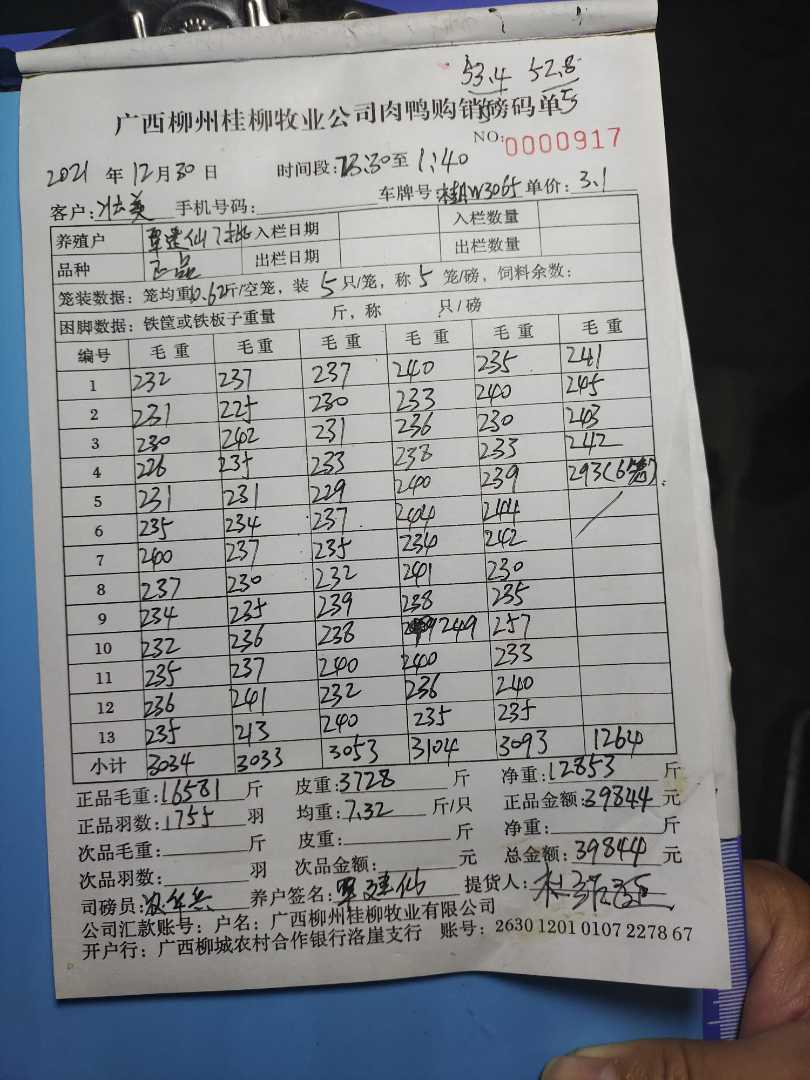 53.4 52.8
5 5
广西柳州桂柳牧业公司肉鸭购销磅码单
NO: 0000917
2021 年 12 月 30 日 时间段: 至 1:40
客户: 手机号码: 车牌号:桂AW3065 单价: 3.1
养殖户 覃建仙 入栏日期 入栏数量
品种 正品 出栏日期 出栏数量
笼装数据: 笼均重 10.62 斤/空笼, 装 5 只/笼, 称 5 笼/磅, 饲料余数:
困脚数据: 铁筐或铁板子重量 斤, 称 只/磅
编号 毛重 毛重 毛重 毛重 毛重 毛重
1 232 237 237 240 235 241
2 231 225 230 233 240 245
3 230 242 231 236 230 243
4 226 235 233 238 233 242
5 231 231 229 240 239 293(6笼)
6 235 234 237 244 244
7 240 237 235 234 242
8 237 230 232 241 230
9 234 235 239 238 235
10 232 236 238 249 257
11 235 237 240 240 233
12 236 241 232 236 240
13 235 213 240 235 235
小计 3034 3033 3053 3104 3093 1264
正品毛重: 16581 斤 皮重: 3728 斤 净重: 12853 斤
正品羽数: 1755 羽 均重: 7.32 斤/只 正品金额: 39844 元
次品毛重: 斤 皮重: 斤 净重: 斤
次品羽数: 羽 次品金额: 元 总金额: 39844 元
司磅员: 养户签名: 覃建仙 提货人:
公司汇款账号: 户名: 广西柳州桂柳牧业有限公司
开户行: 广西柳城农村合作银行洛崖支行 账号: 2630 1201 0107 2278 67